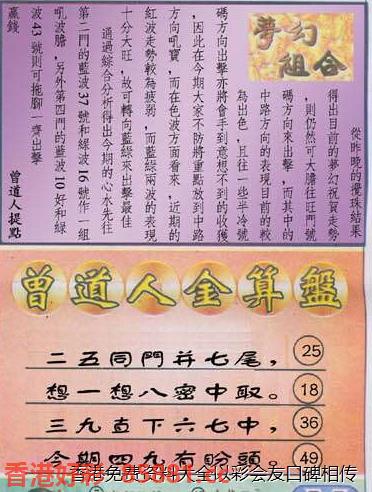 夢幻
組合
從昨晚的攪珠結果
得出目前的夢幻祝賀走勢
，則仍然可大膽往旺門號
碼方向來出擊，而其中的
中路方向的表現目前的較
為出色，且往一些半冷號
碼方向出擊亦將會手到意想不到的收獲
，因此在今期大家不防將重點放到中路
方向吼寶，而在色波方面看來，近期的
紅波走勢較為疲弱，而藍綠兩波的表現
十分大旺，故可轉向藍綠來出擊最佳
通過綜合分析得出今期的心水先往
第二門的藍波37號和綠波16號作一組
吼波膽，另外第四門的藍波10好和綠
波43號則可拖腳一齊出擊
贏錢
曾道人提點
曾道人金算盤
二五同門并七尾，25
想一想八密中取。18
三九直下六七中，36
今期四九有盼頭。49
香港免费资料大全以彩会友口碑相传